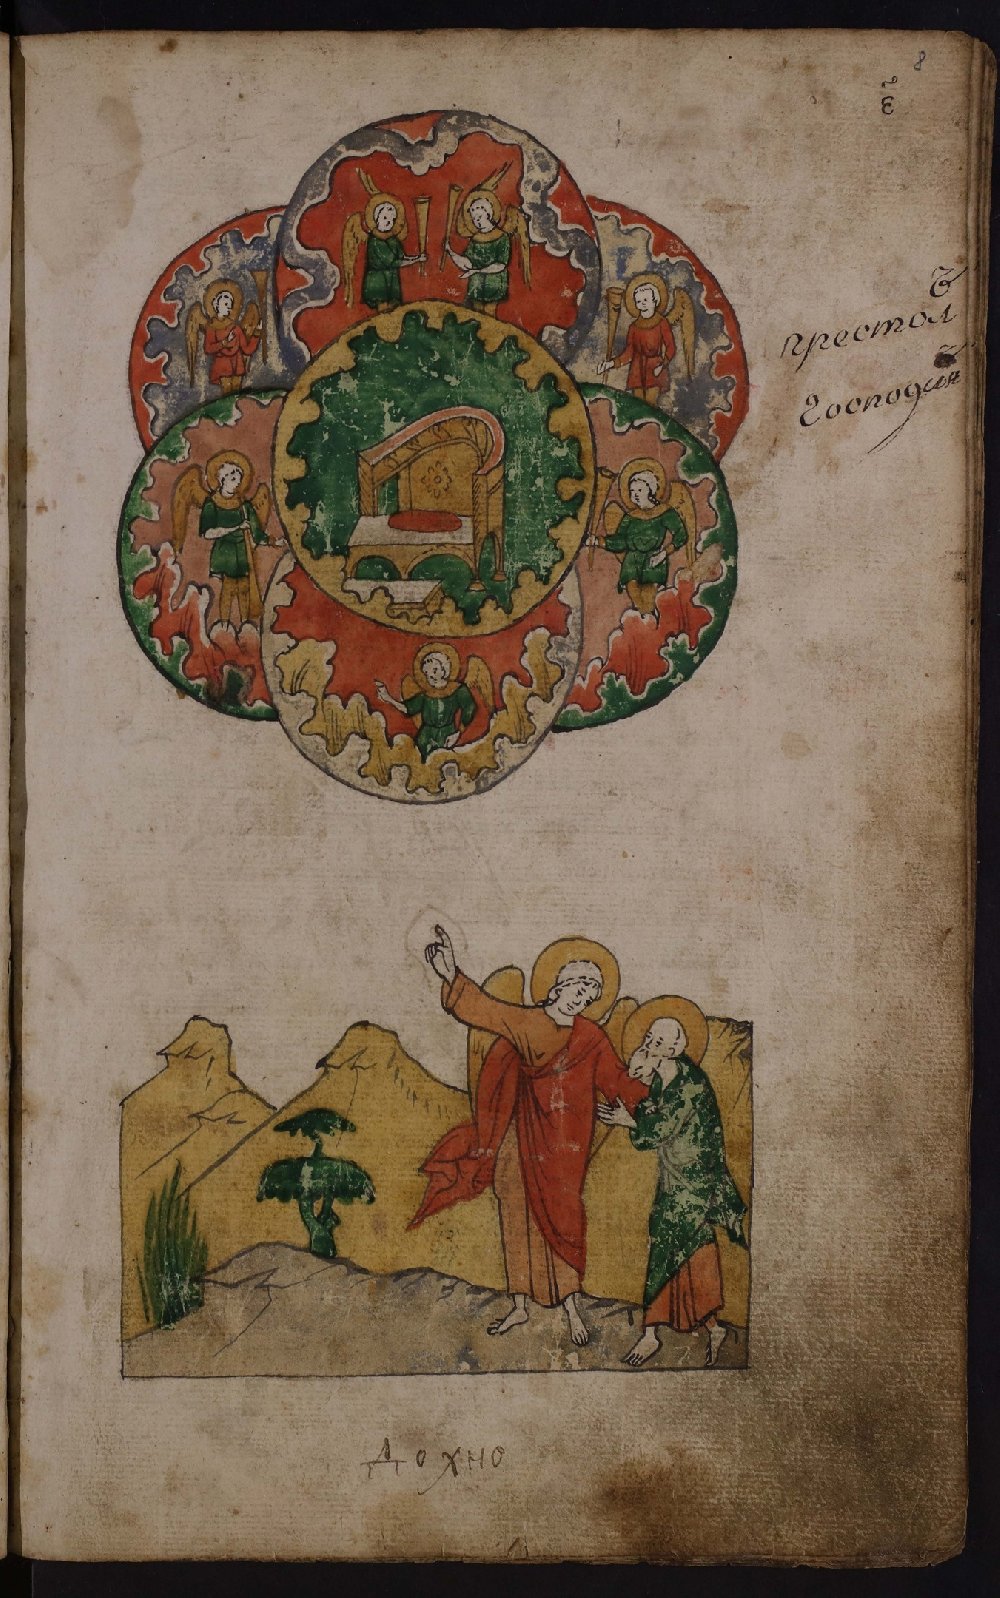 8
є҃
престол
господен
дохно